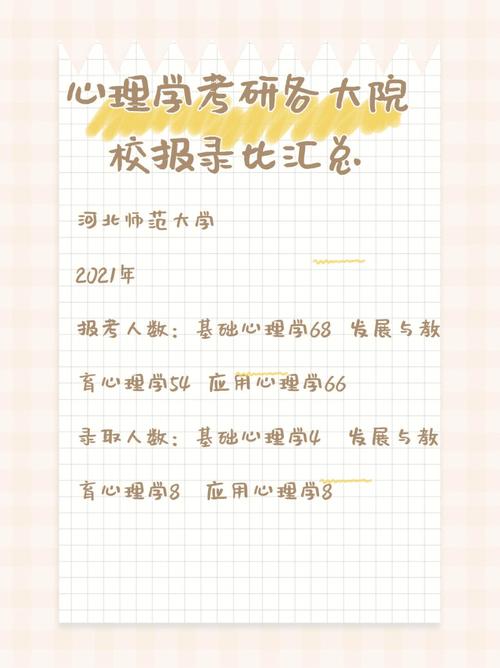 心理学考研各大院
校报录比汇总
河北师范大学
2021年
报考人数：基础心理学68 发展与教
育心理学54 应用心理学66
录取人数：基础心理学4 发展与教
育心理学8 应用心理学8